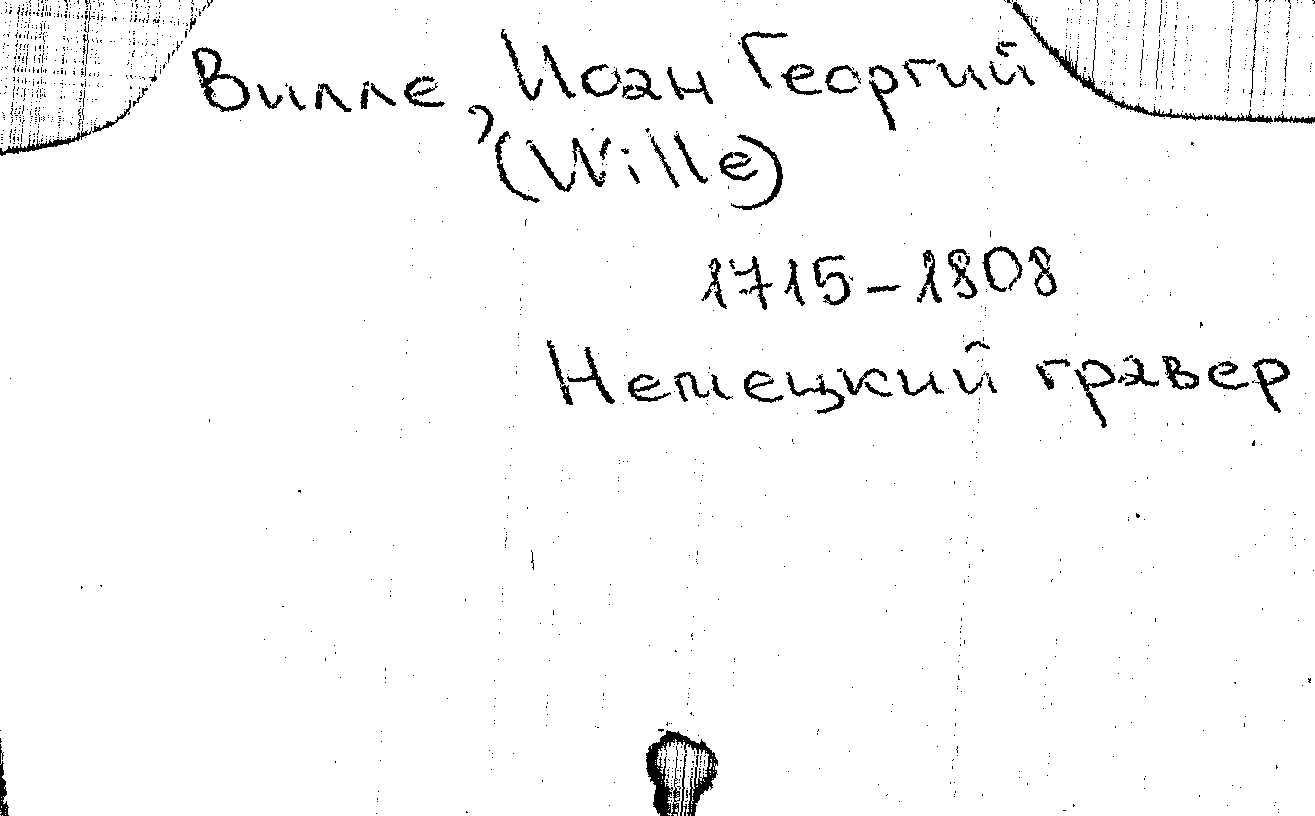 Вилле, Иоан Георгий
(Wille)
1715-1808
Немецкий гравер